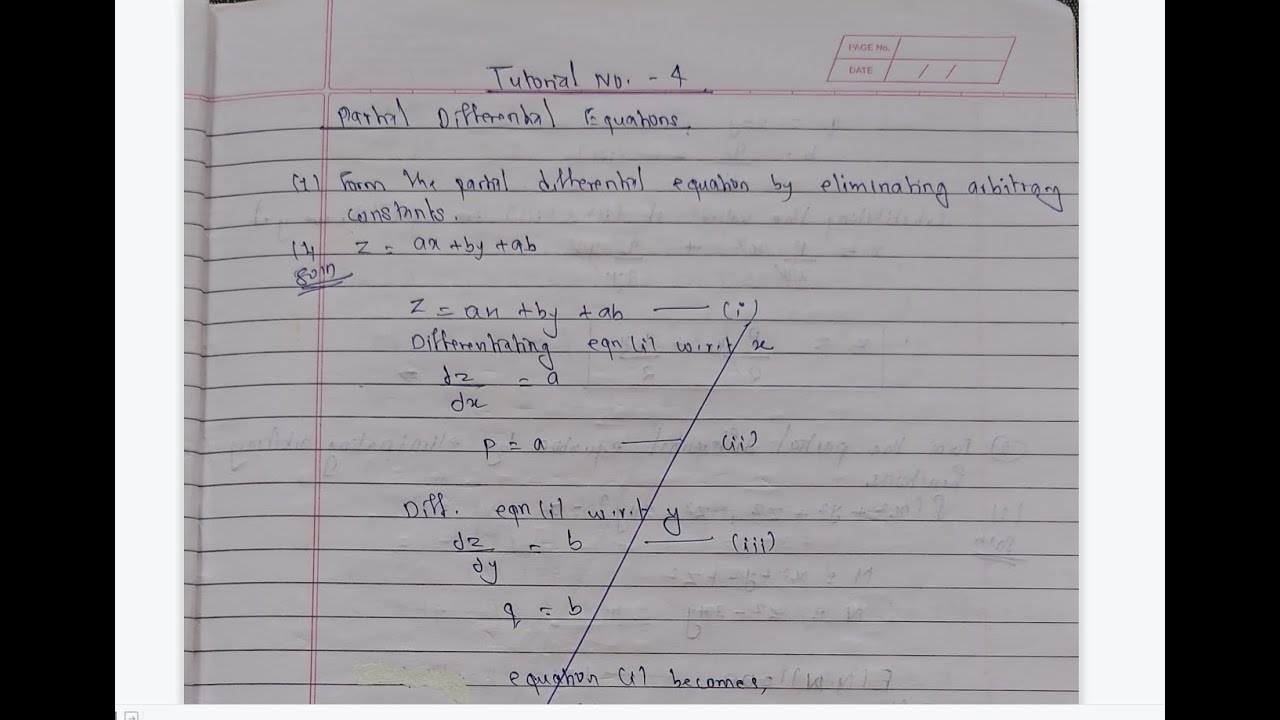 PAGE No.
DATE / /
Tutorial No. - 4
Partial Differential Equations.
(1) Form the partial differential equation by eliminating arbitrary
constants.
(1) z = ax + by + ab
Soln
z = ax + by + ab —— (i)
Differentiating eqn (i) w.r.t x
dz/dx = a
p = a —— (ii)
Diff. eqn (i) w.r.t y
dz/dy = b —— (iii)
q = b
equation (i) becomes,